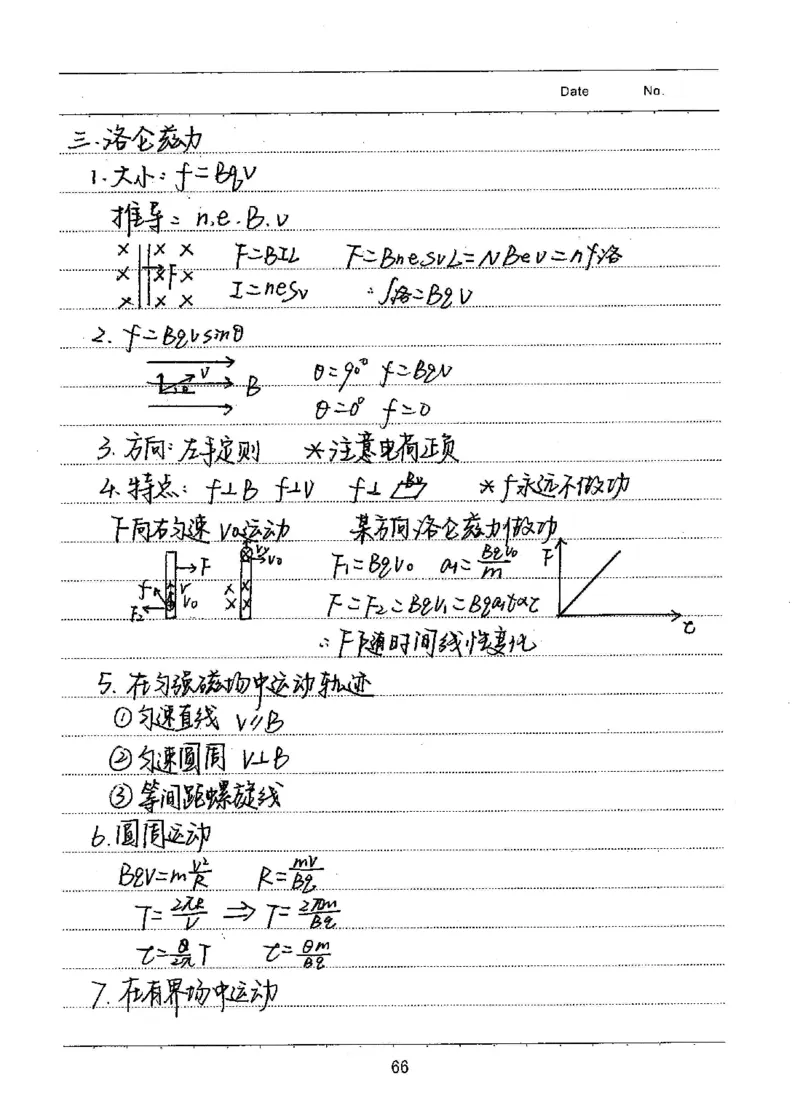 Date No.
三.洛仑兹力
1.大小: f=BqV
推导: n.e.B.v
F=BIL F=BneSvL=NBev=nf洛
I=neSv ∴f洛=BqV
2. f=Bqvsinθ
V B θ=90° f=BqV
θ=0° f=0
3.方向:左手定则 *注意电荷正负
4.特点: f⊥B f⊥V f⊥ BV *f永远不做功
F向右匀速V₀运动 某方向洛仑兹力做功
F F₁=BqV₀ a₁=BqV₀/m F
F=F₂=BqV₁=Bqa₁t∝t t
∴F随时间线性变化
5.在匀强磁场中运动轨迹
①匀速直线 V∥B
②匀速圆周 V⊥B
③等间距螺旋线
6.圆周运动
BqV=mV²/R R=mV/Bq
T=2πR/V ⇒ T=2πm/Bq
t=θ/2π T t=θm/Bq
7.在有界场中运动
66